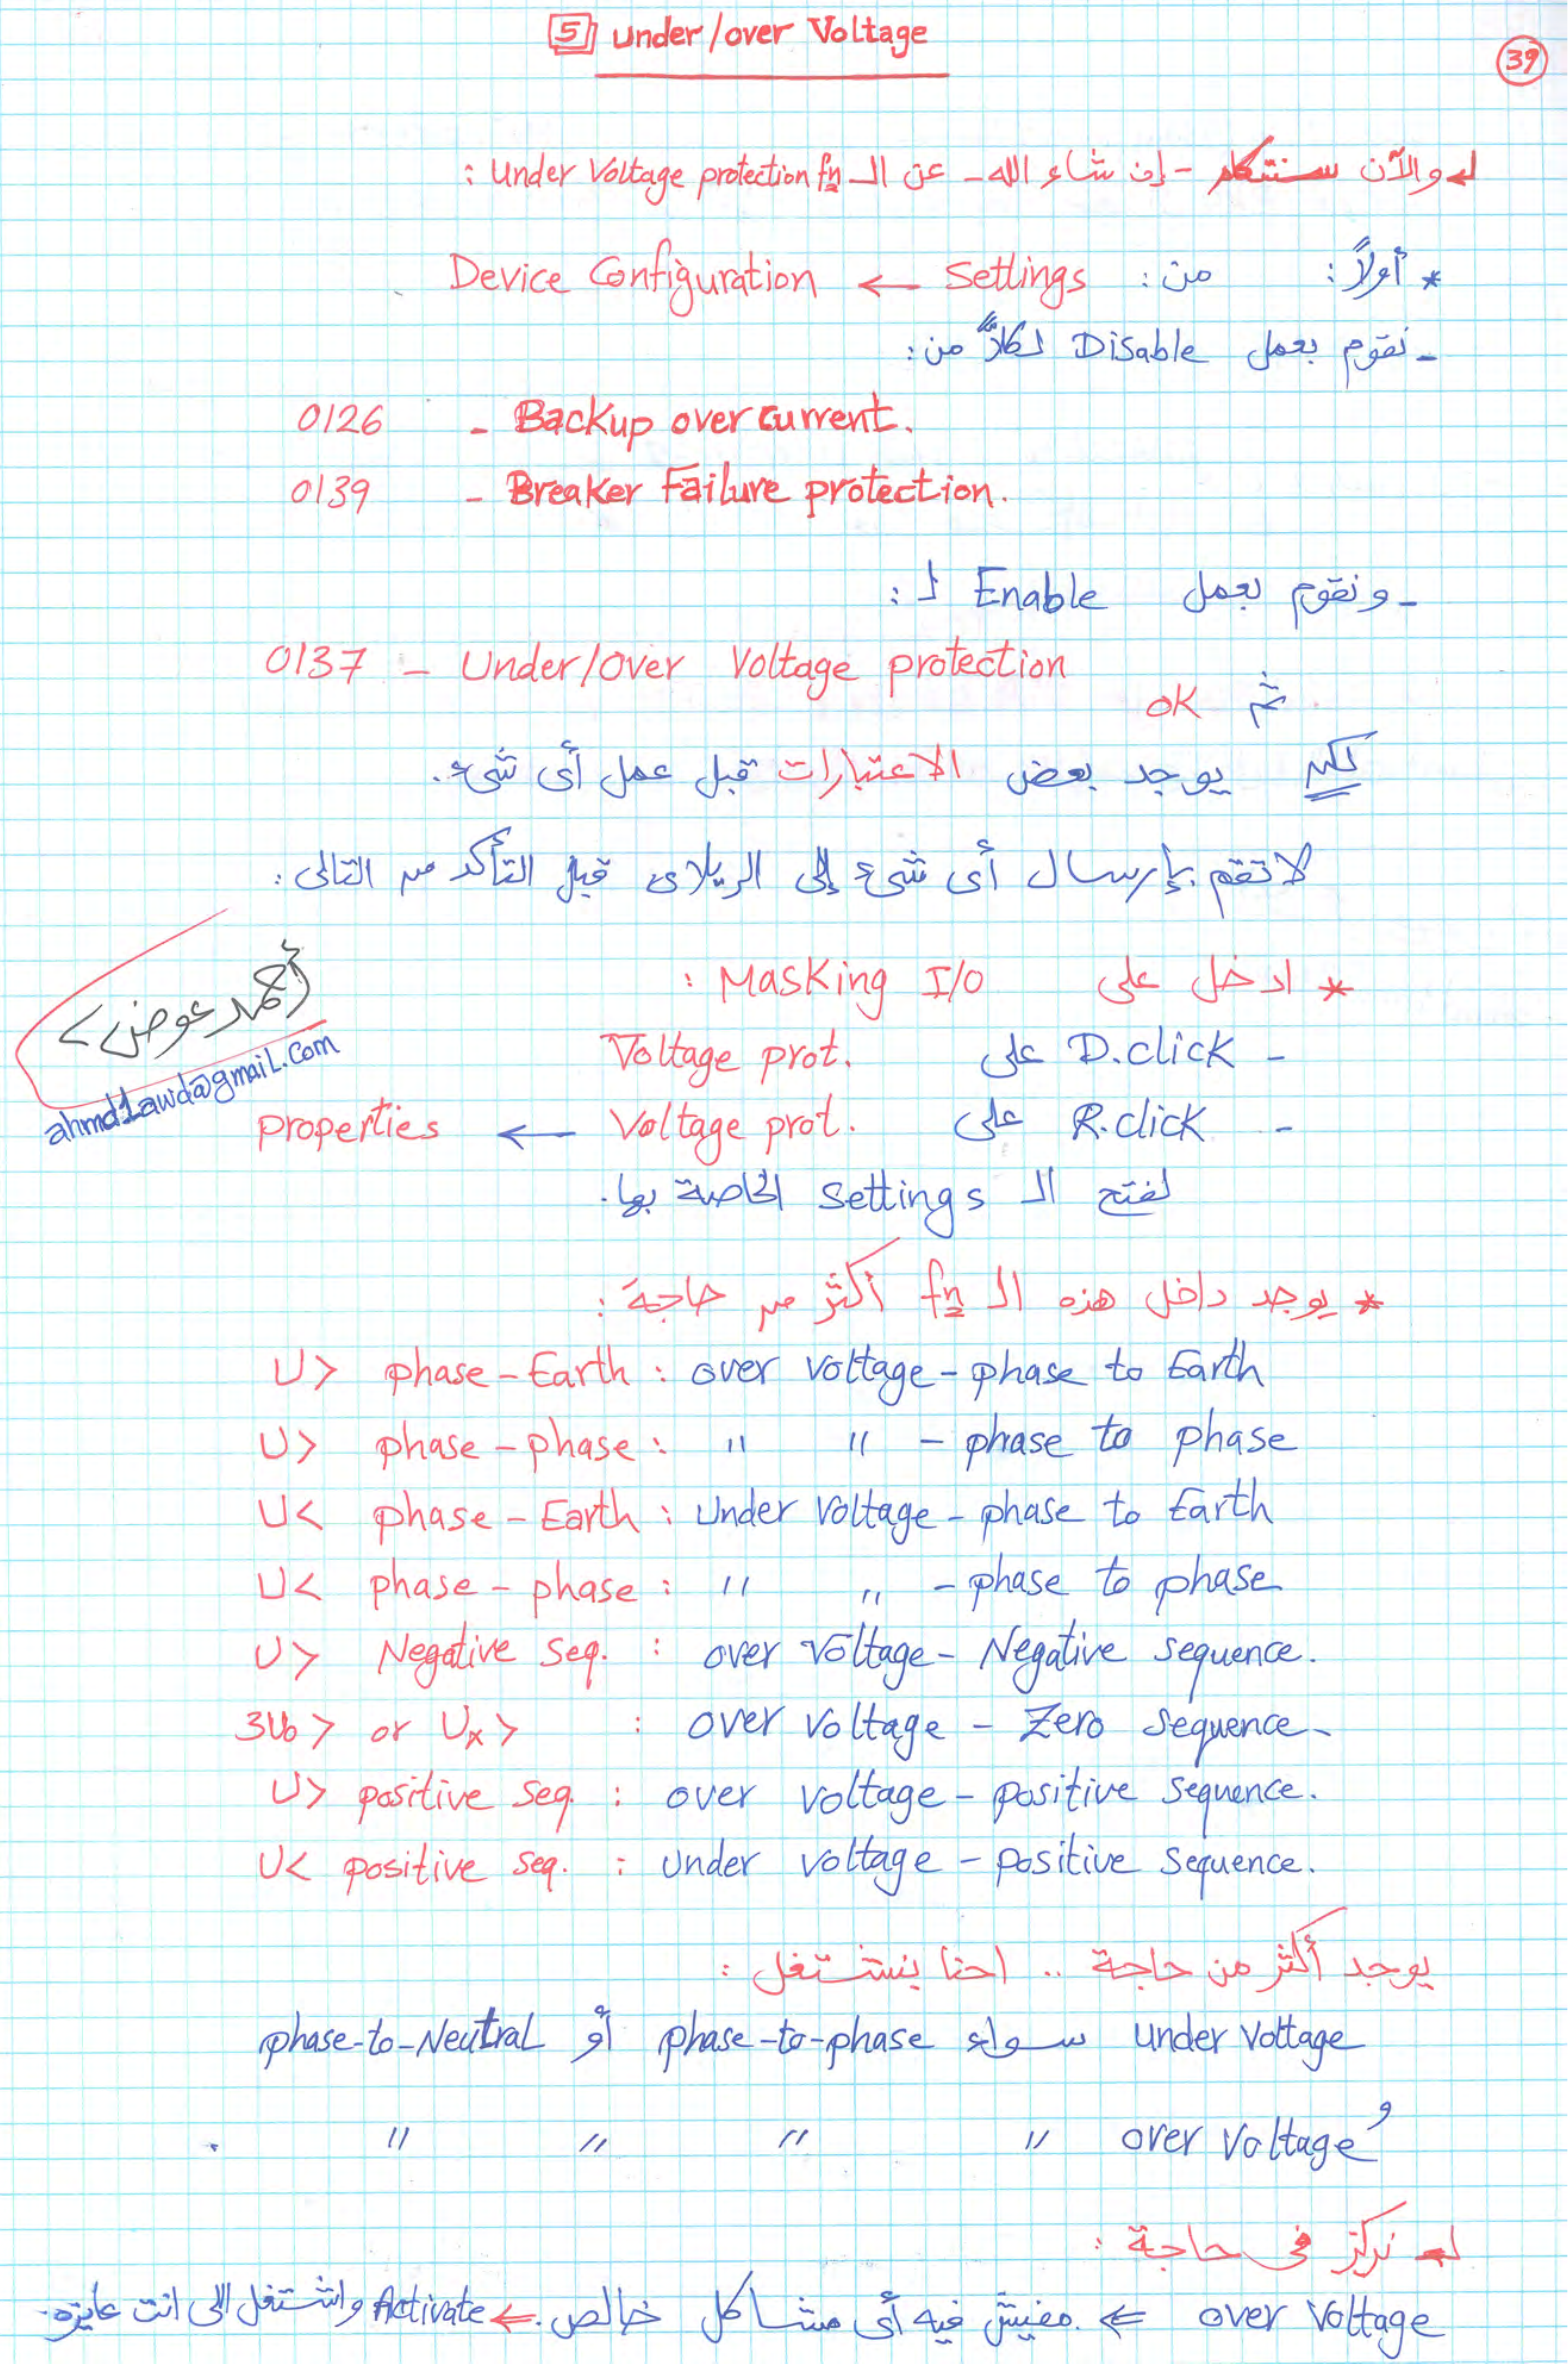 5 Under/over Voltage
39
والآن سنتكلم - إن شاء الله - عن الـ Under Voltage protection fn :
* أولاً : من : Settings ← Device Configuration
- نقوم بعمل Disable لكلاً من :
0126 - Backup over current.
0139 - Breaker Failure protection.
- ونقوم بعمل Enable لـ :
0137 - Under/Over Voltage protection
ثم OK
لكن يوجد بعض الاعتبارات قبل عمل أى شىء.
لا تقم بإرسال أى شىء إلى الريلاى قبل التأكد من التالى :
* ادخل على Masking I/O :
- D.click على Voltage prot.
- R.click على Voltage prot. ← properties
لفتح الـ Settings الخاصة بها.
أحمد عوض
ahmd1awd@gmail.com
* يوجد داخل هذه الـ fn أكثر من حاجة :
U> phase-Earth : over voltage - phase to Earth
U> phase-phase : " " - phase to phase
U< phase-Earth : Under voltage - phase to Earth
U< phase-phase : " " - phase to phase
U> Negative seq. : over voltage - Negative sequence.
3U0> or Ux> : over voltage - Zero sequence-
U> positive seq. : over voltage - positive sequence.
U< positive seq. : Under voltage - positive sequence.
يوجد أكثر من حاجة .. احنا بنشتغل :
under voltage سواء phase-to-phase أو phase-to-Neutral
و over voltage " " " " .
نركز فى حاجة :
over voltage ⇐ مفيش فيه أى مشاكل خالص. ← Activate واشتغل اللى انت عايزه.